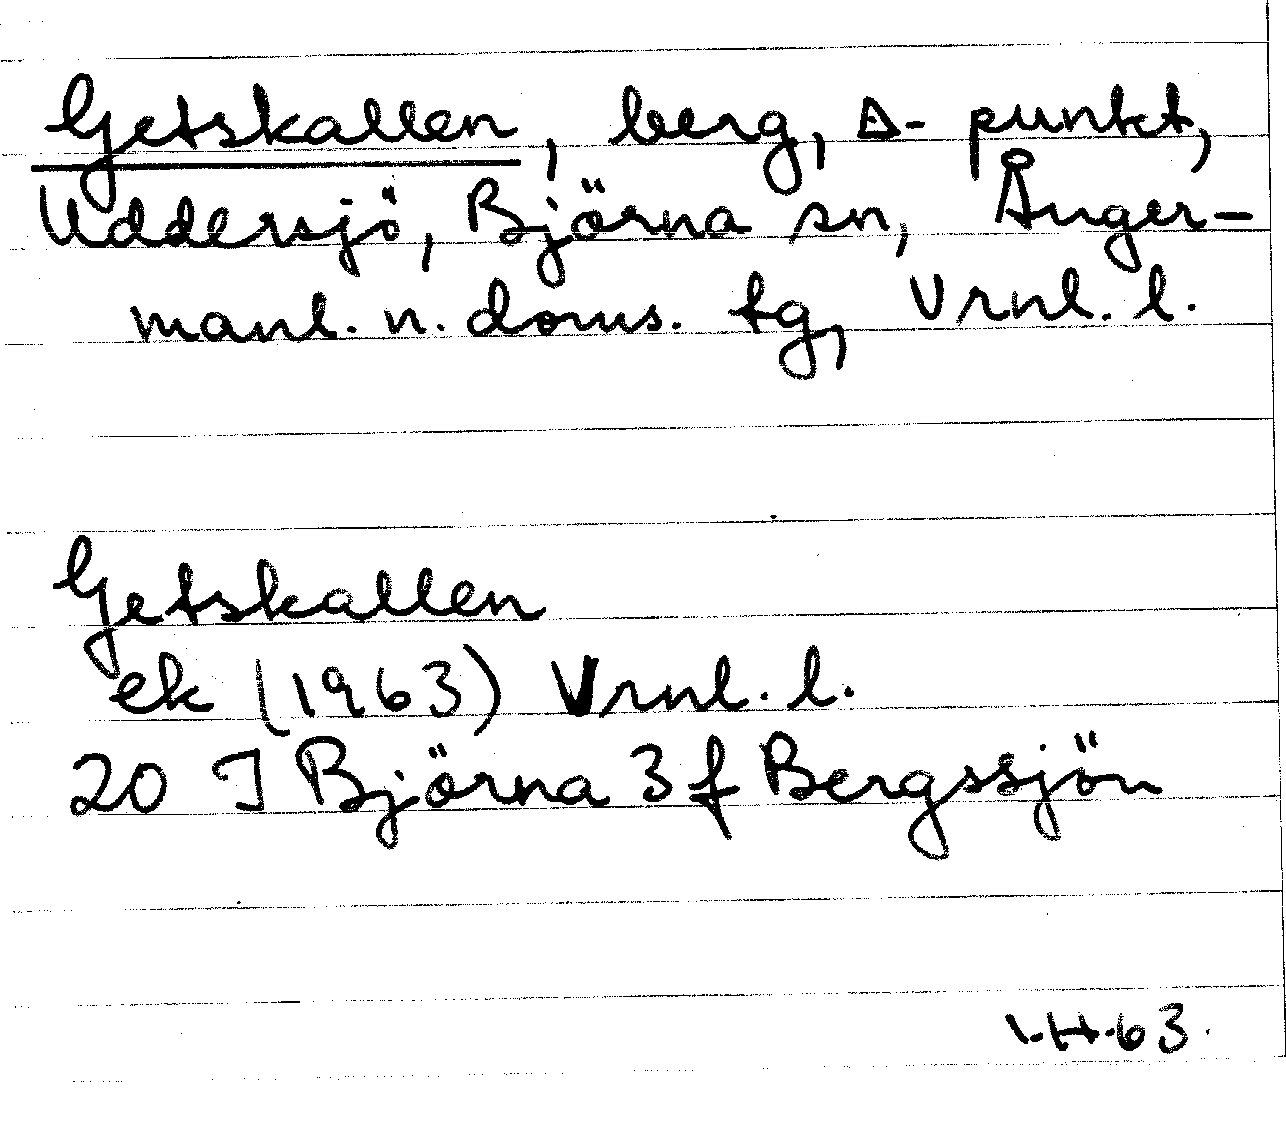 Getskallen, berg, △-punkt,
Uddersjö, Björna sn, Ånger-
manl. n. doms. tg, Vrnl. l.
Getskallen
ek (1963) Vrnl. l.
20 I Björna 3 f Bergssjön
63.